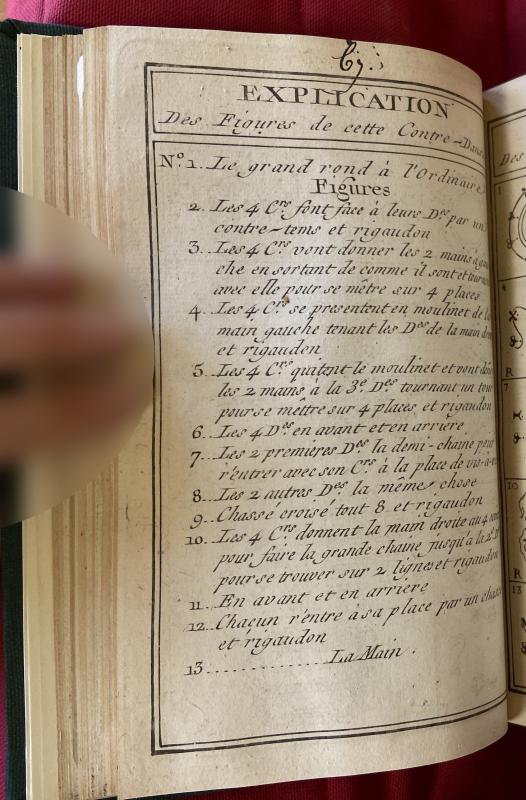 EXPLICATION
Des Figures de cette Contre-Dans
No. 1. Le grand rond à l'Ordinaire
Figures
2. Les 4 Crs font face à leurs Des par un
contre-tems et rigaudon
3. Les 4 Crs vont donner les 2 mains à gau
che en sortant de comme il sont et tournant
avec elle pour se mêtre sur 4 places
4. Les 4 Crs se presentent en moulinet de la
main gauche tenant les Des de la main
et rigaudon
5. Les 4 Crs quitent le moulinet et vont
les 2 mains à la 3e Des tournant un tour
pour se mêttre sur 4 places, et rigaudon
6. Les 4 Des en avant et en arriere
7. Les 2 premieres Des la demi-chaine pour
r'entrer avec son Crs à la place de vis-à-v
8. Les 2 autres Des la même chose
9. Chassé croisé tout 8 et rigaudon
10. Les 4 Crs donnent la main droite au 4
pour faire la grande chaine jusqu'a la
pour se trouver sur 2 lignes et rigaudon
11. En avant et en arriere
12. Chacun r'entre à sa place par un chass
et rigaudon
13. ............ La Main.